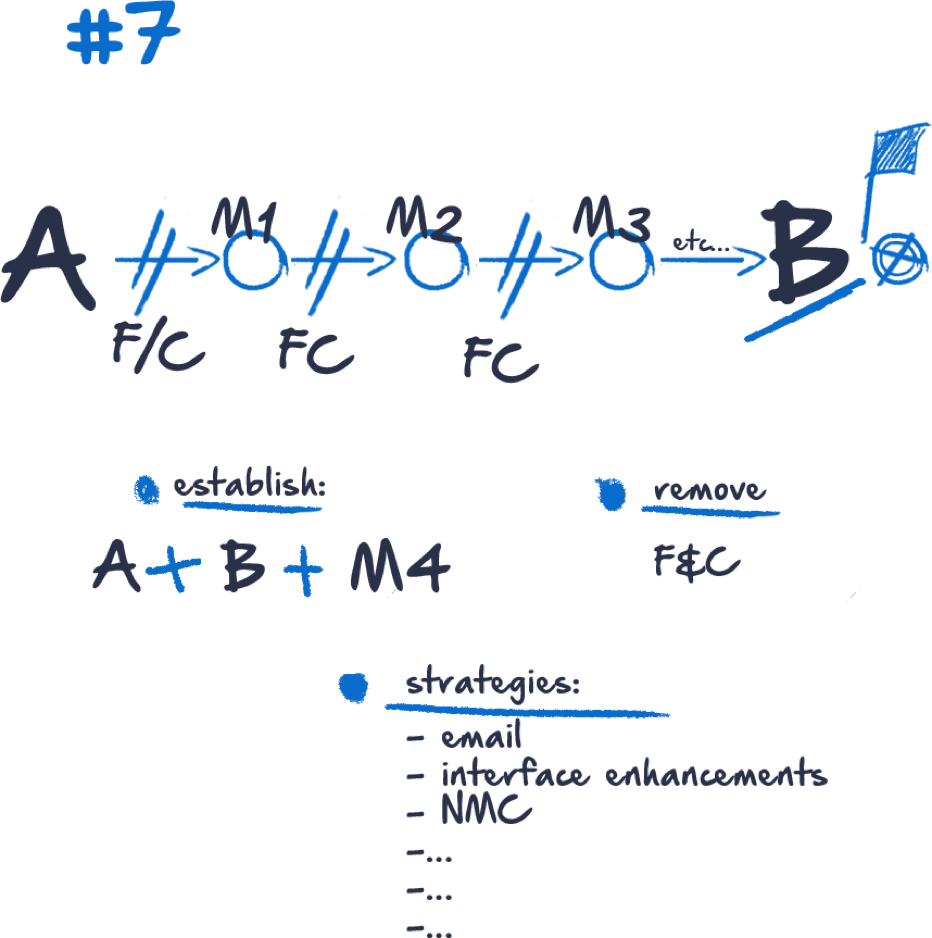 #7
M1 M2 M3
A etc... B
F/C FC FC
establish: remove
A + B + M4 F&C
strategies:
- email
- interface enhancements
- NMC
-...
-...
-...